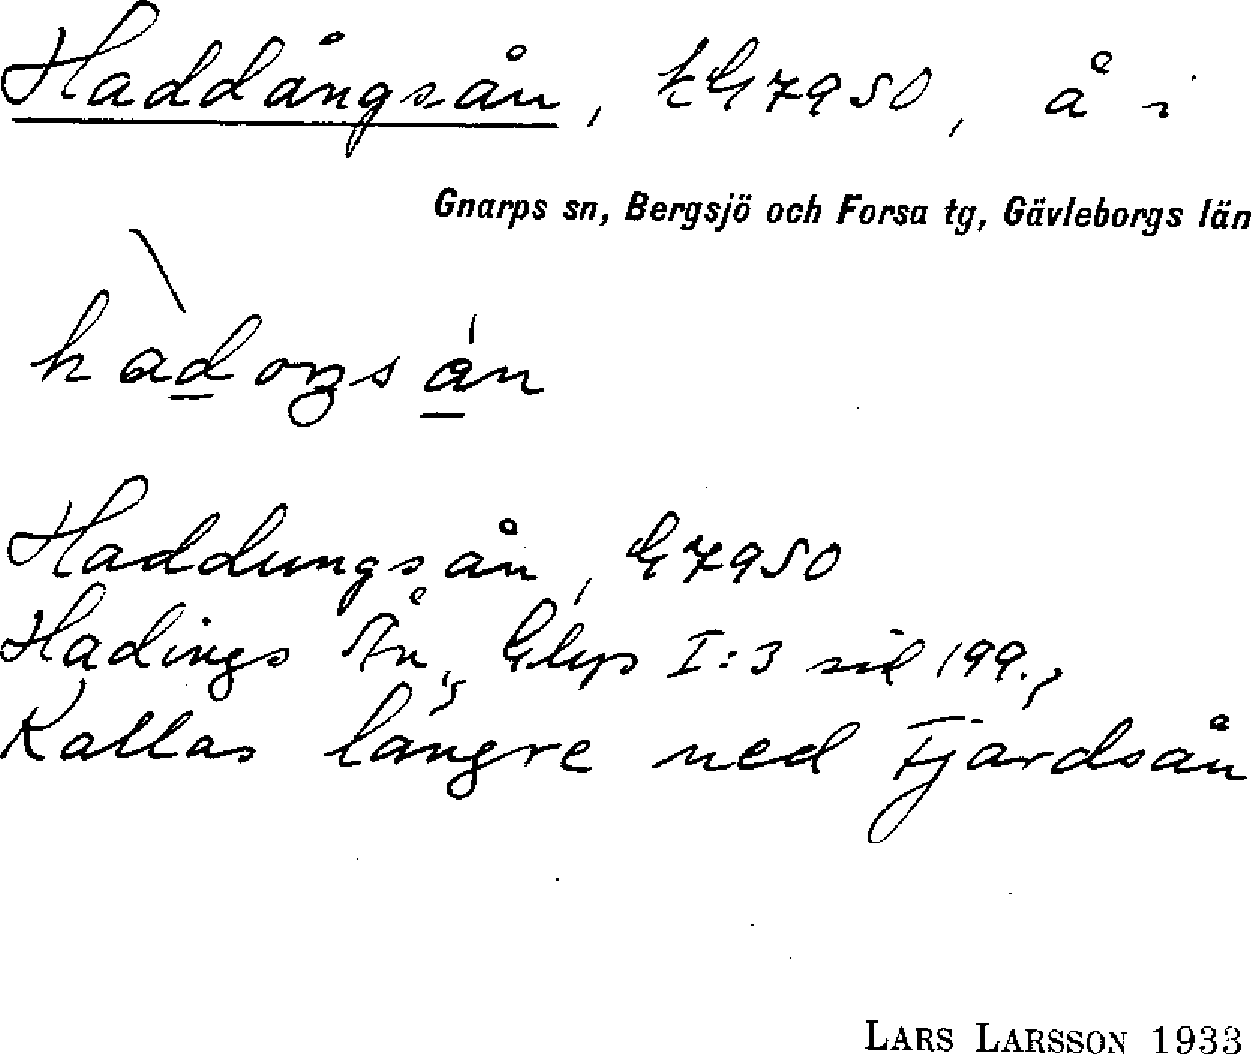 Haddångsån, tG7950, å i
Gnarps sn, Bergsjö och Forsa tg, Gävleborgs län
Haddungsån, G7950
Hadings Ån, Glys I:3 sid 199.,
Kallas längre ned Fjärdsån
LARS LARSSON 1933